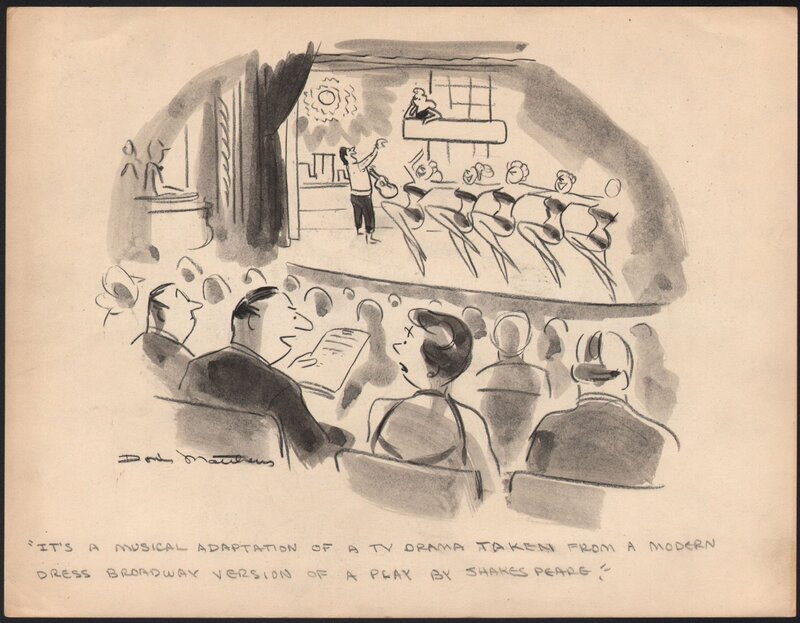 Doris Matthews
"IT'S A MUSICAL ADAPTATION OF A TV DRAMA TAKEN FROM A MODERN
DRESS BROADWAY VERSION OF A PLAY BY SHAKESPEARE."